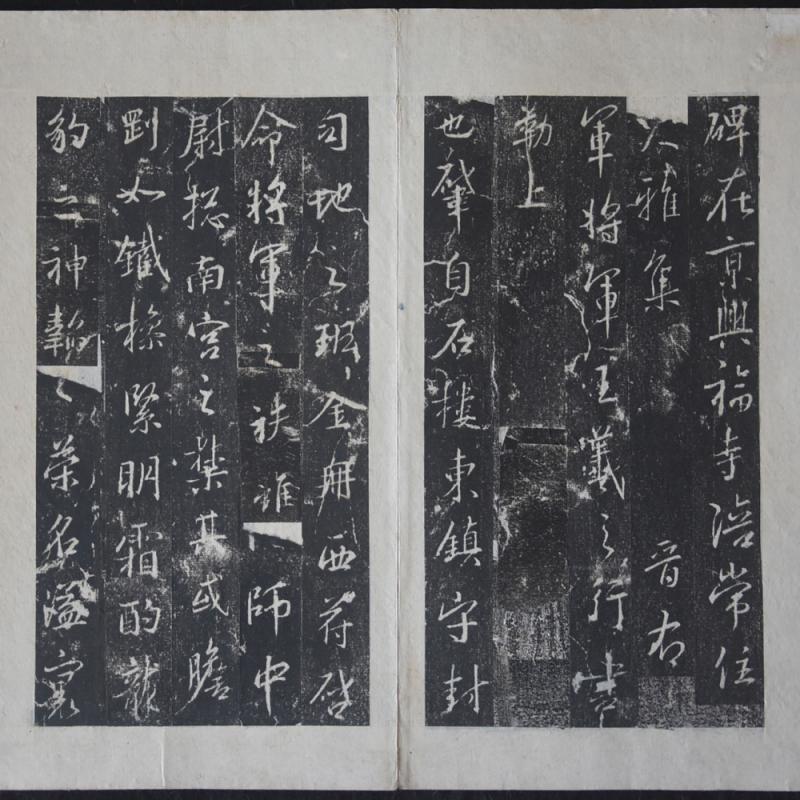 碑在京興福寺陪常住
大雅集 晋右
軍將軍王羲之行書
勒上
也肇自石樓東鎮守封
句地之珉金冊西符啓
命將軍之袟誰師中
尉揔南宮之禁其或瞻
䂓如鐵操緊明霜酌龍
豹之神韜之榮名溢寰